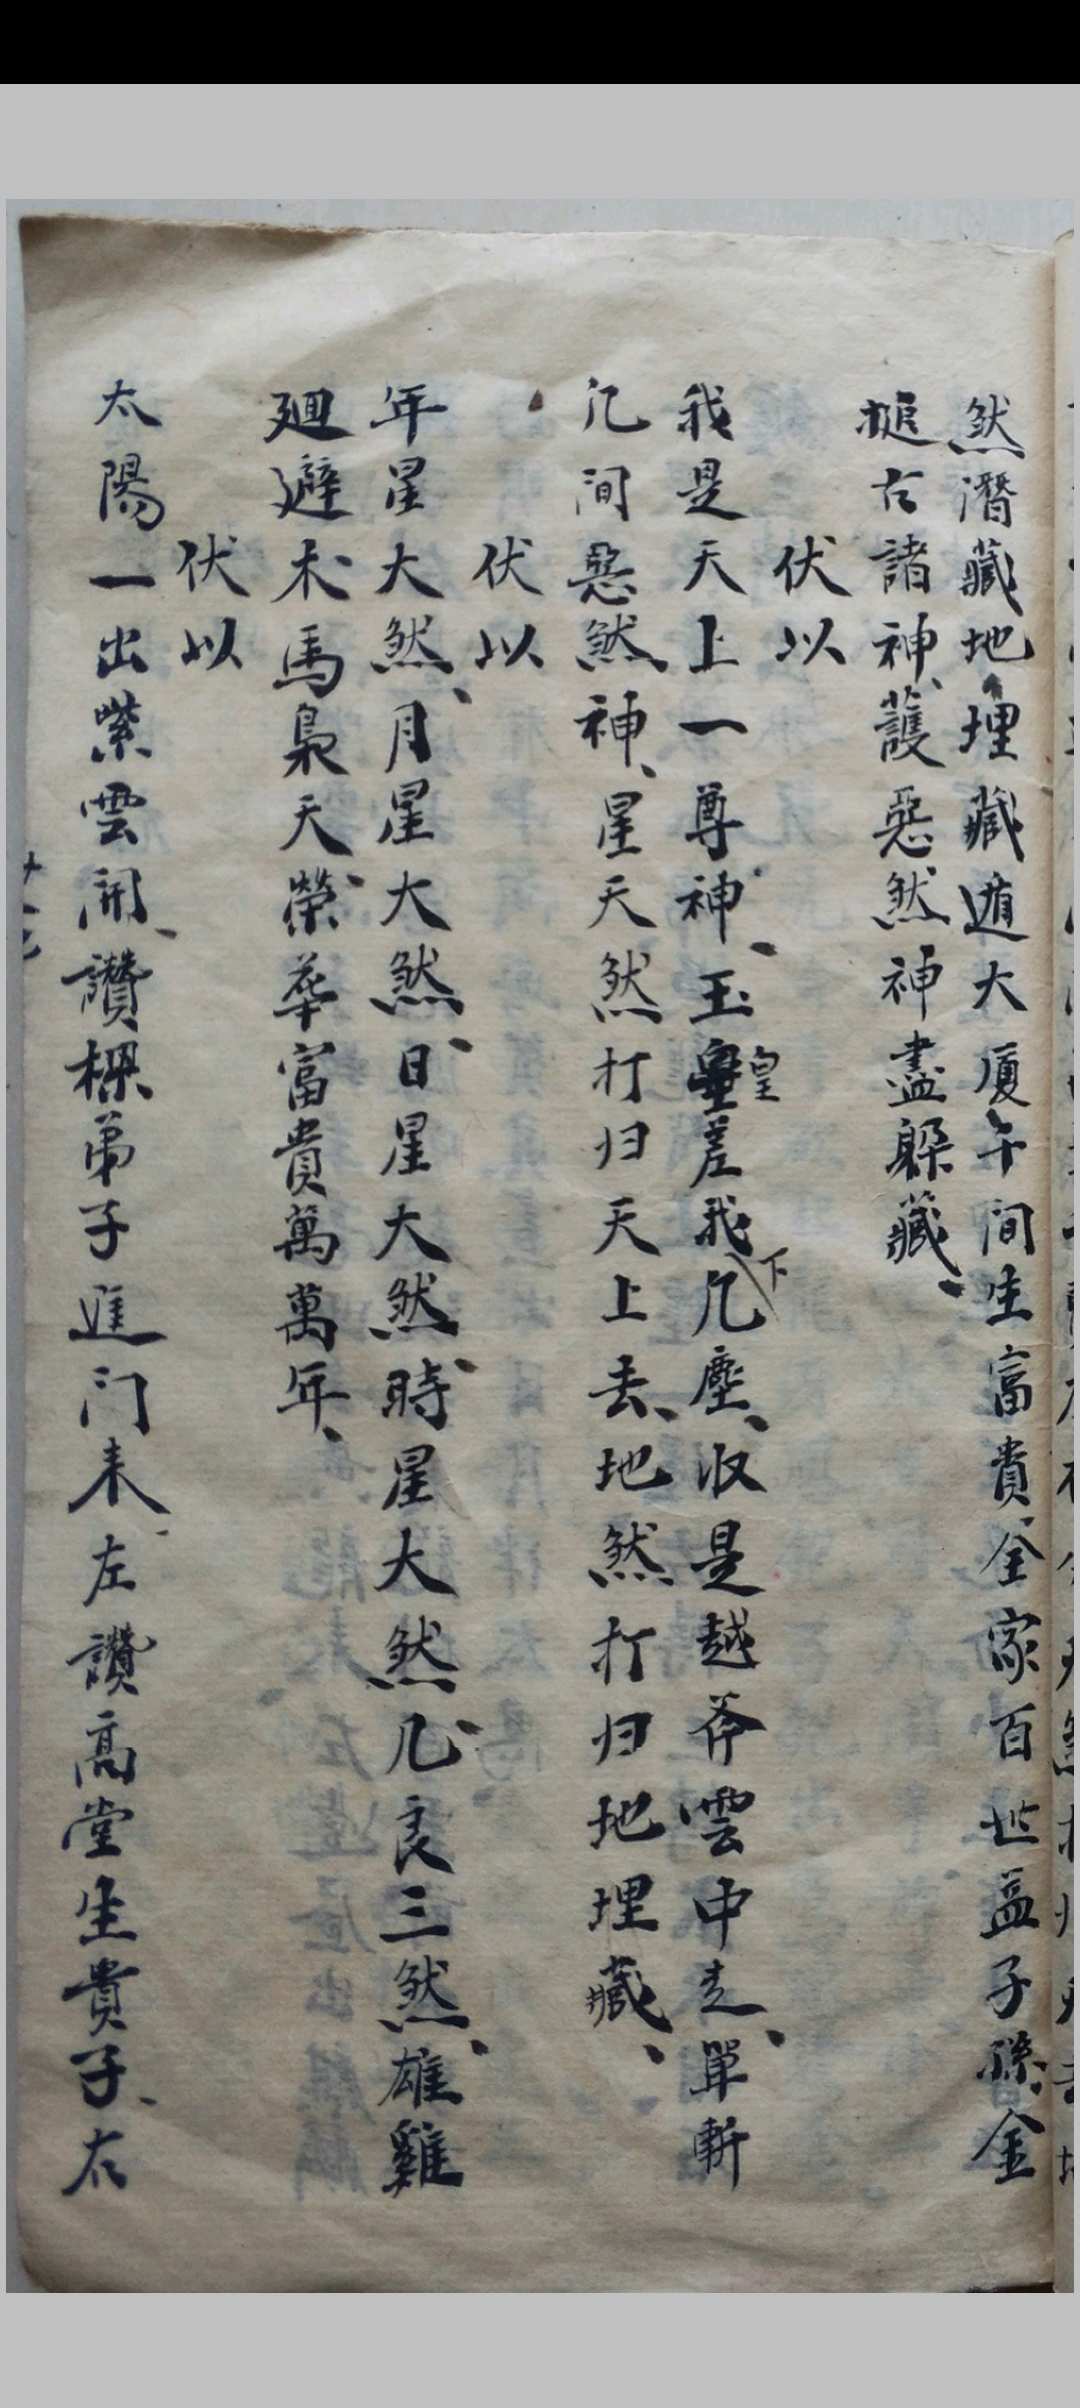 然潛藏地埋藏遁大厦千间生富貴全家百世益子孫金
槌古諸神護惡然神盡躲藏
伏以
我是天上一尊神玉皇差我下凡塵收是越斧雲中走單斬
凡间惡然神星天然打归天上去地然打归地埋藏
伏以
年星大然月星大然日星大然時星大然凡良三然雄雞
廻避木馬梟天榮華富貴萬萬年
伏以
太陽一出紫雲開讚樑弟子進门来左讚高堂生貴子右